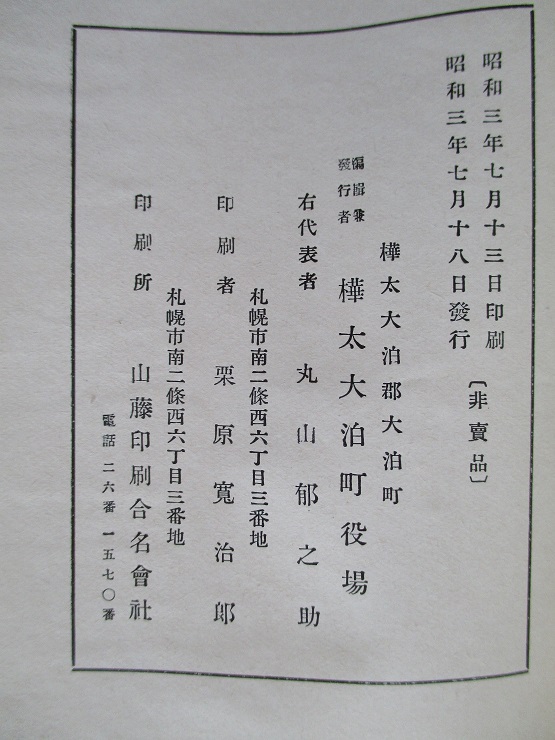 昭和三年七月十三日印刷
昭和三年七月十八日發行
〔非賣品〕
樺太大泊郡大泊町
編輯兼
發行者
樺太大泊町役場
右代表者 丸山郁之助
札幌市南二條西六丁目三番地
印刷者 栗原寬治郎
札幌市南二條西六丁目三番地
印刷所 山藤印刷合名會社
電話 二六番 一五七〇番